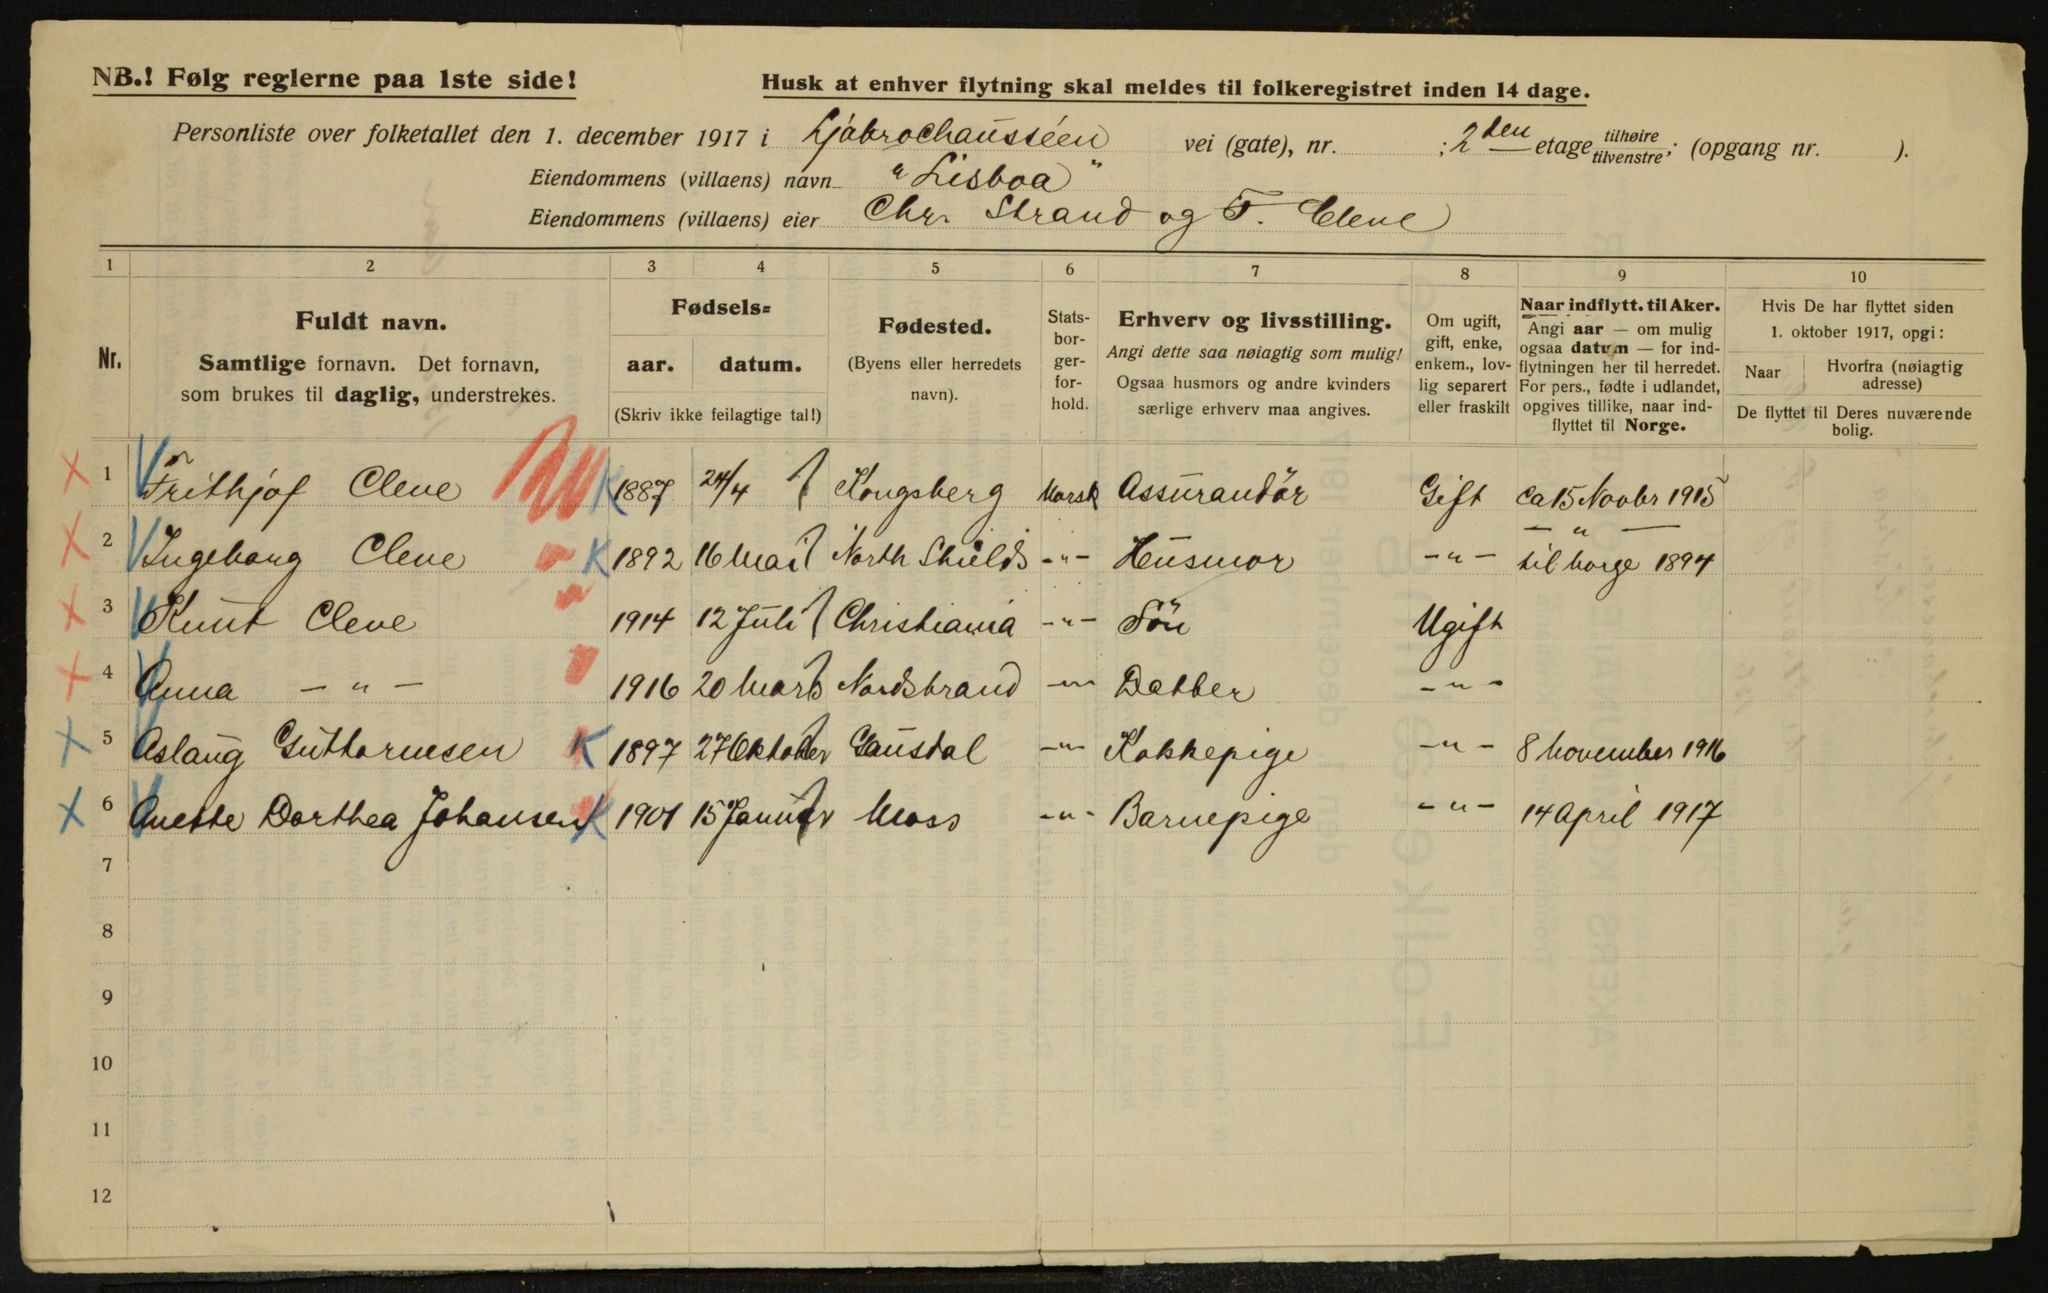 NB.! Følg reglerne paa 1ste side!
Husk at enhver flytning skal meldes til folkeregistret inden 14 dage.
Personliste over folketallet den 1. december 1917 i Ljabrochausséen vei (gate), nr. ; 2den etage tilhøire tilvenstre; (opgang nr. ).
Eiendommens (villaens) navn "Lisboa"
Eiendommens (villaens) eier Chr. Strand og F. Cleve
1 2 3 4 5 6 7 8 9 10
Nr.
Fuldt navn.
Samtlige fornavn. Det fornavn,
som brukes til daglig, understrekes.
Fødsels-
aar. datum.
(Skriv ikke feilagtige tal!)
Fødested.
(Byens eller herredets
navn).
Stats-
bor-
ger-
for-
hold.
Erhverv og livsstilling.
Angi dette saa nøiagtig som mulig!
Ogsaa husmors og andre kvinders
særlige erhverv maa angives.
Om ugift,
gift, enke,
enkem., lov-
lig separert
eller fraskilt
Naar indflytt. til Aker.
Angi aar — om mulig
ogsaa datum — for ind-
flytningen her til herredet.
For pers., fødte i udlandet,
opgives tillike, naar ind-
flyttet til Norge.
Hvis De har flyttet siden
1. oktober 1917, opgi:
Naar
Hvorfra (nøiagtig
adresse)
De flyttet til Deres nuværende
bolig.
1 Frithjof Cleve K 1887 24/4 Kongsberg Norsk Assurandör Gift ca 15 Novbr 1915
2 Ingeborg Cleve K 1892 16 Mai North Shields -"- Husmor -"- — " — til Norge 1894
3 Knut Cleve 1914 12 Juli Christiania -"- Sön Ugift
4 Anna -"- 1916 20 Marts Nordstrand -"- Datter -"-
5 Aslaug Guttormsen K 1897 27 Oktober Gausdal -"- Kokkepige -"- 8 November 1916
6 Anette Dorthea Johansen K 1901 15 Januar Moss -"- Barnepige -"- 14 April 1917
7
8
9
10
11
12